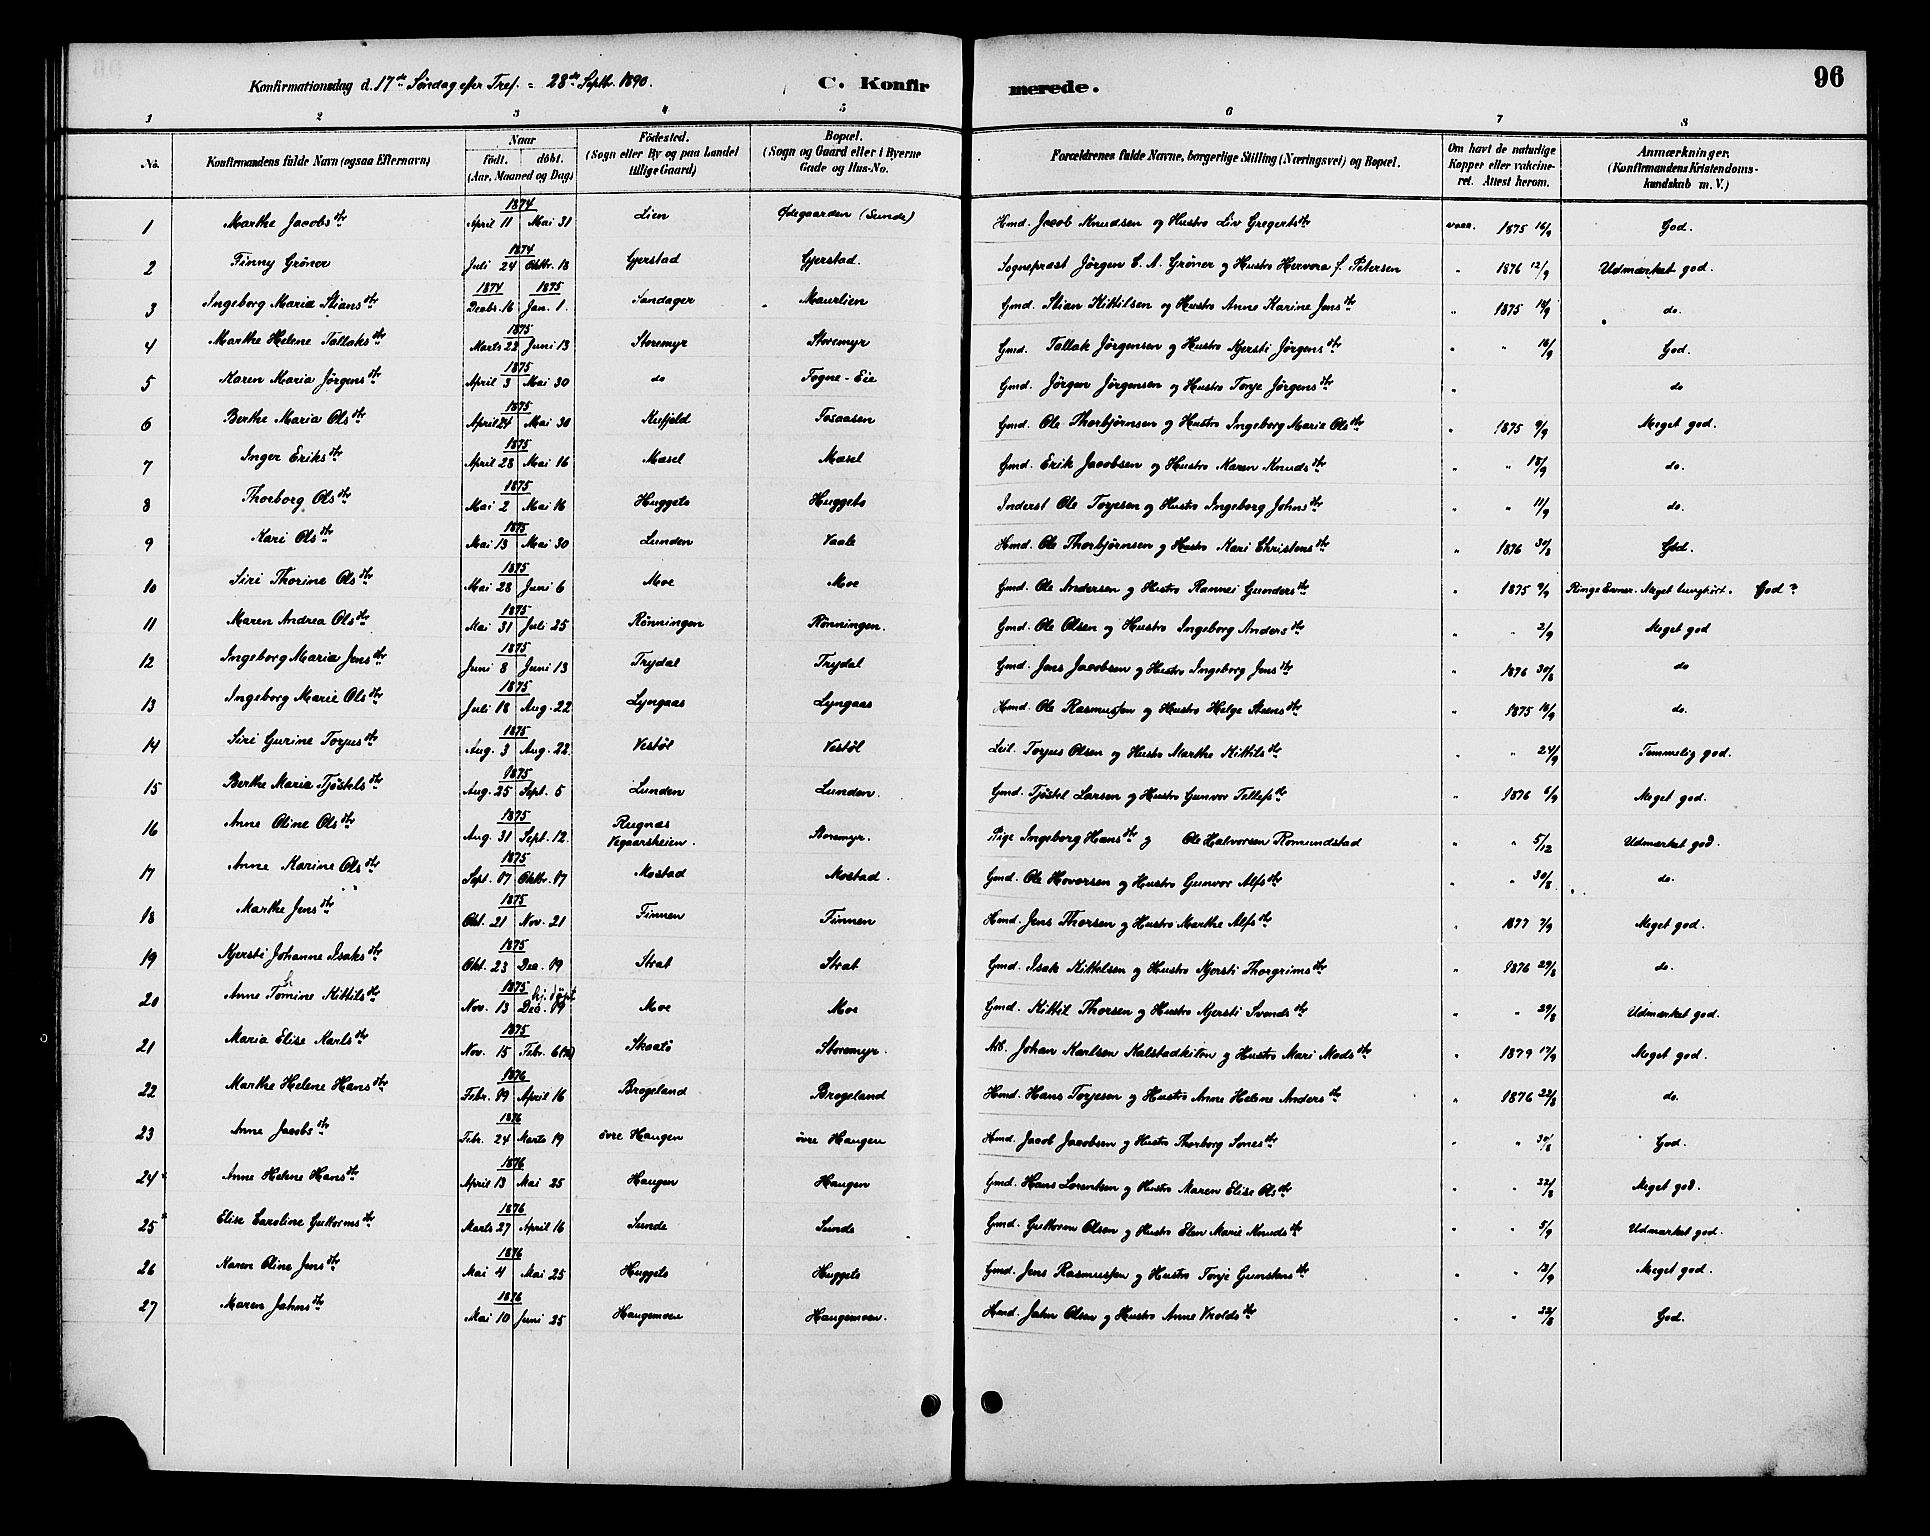 96
Konfirmationsdag d. 17de Søndag efter Tref. = 28de Septbr. 1890. C. Konfirmerede.
1 2 3 4 5 6 7 8
No. Konfirmandens fulde Navn (ogsaa Efternavn) Naar födt. döbt. (Aar, Maaned og Dag) Födested. (Sogn eller By og paa Landet tillige Gaard) Bopæl. (Sogn og Gaard eller i Byerne Gade og Hus-No. Forældrenes fulde Navne, borgerlige Stilling (Næringsvei) og Bopæl. Om havt de naturlige Kopper eller vakcineret. Attest herom. Anmærkninger. (Konfirmandens Kristendomskundskab m. V.)
1 Marthe Jacobsdtr 1874 April 11 Mai 31 Lien Ødegaarden (Sunde) Hmd. Jacob Knudsen og Hustro Liv Gregertsdtr vacc. 1875 16/9 God.
2 Finny Gröner 1874 Juli 24 Oktbr. 18 Gjerstad Gjerstad. Sogneprest Jörgen C. A. Gröner og Hustro Hervora f. Petersen " 1876 12/9 Udmærket god.
3 Ingeborg Maria Stiansdtr 1874 1875 Decbr. 16 Jan. 1. Sandager Maurlien Gmd. Stian Kittilsen og Hustro Anne Karine Jensdtr " 1875 14/9 do.
4 Marthe Helene Tallaksdtr 1875 Marts 22 Juni 13 Storemyr Storemyr Gmd. Tallak Jörgensen og Hustro Kjersti Jörgensdtr " " 16/9 God.
5 Karen Maria Jörgensdtr 1875 April 3 Mai 30 do Togne-Eie Gmd. Jörgen Jörgensen og Hustro Tonje Jörgensdtr " do
6 Berthe Maria Olsdtr 1875 April 24 Mai 30 Tosaasen Gmd. Ole Thorbjörnsen og Hustro Ingeborg Maria Olsdtr " 1875 9/9 Meget god.
7 Inger Eriksdtr 1875 April 28 Mai 16 Masel Masel Gmd. Erik Jacobsen og Hustro Karen Knudsdtr " " 18/9 do.
8 Thorborg Olsdtr 1875 Mai 2 Mai 16 Huggeto Huggeto Inderst Ole Torjesen og Hustro Ingeborg Johnsdtr " " 11/9 do.
9 Kari Olsdtr 1875 Mai 13 Mai 30 Lunden Vaale Hmd. Ole Thorbjörnsen og Hustro Kari Christensdtr " 1876 30/8 God.
10 Siri Thorine Olsdtr 1875 Mai 28 Juni 6 Moe Moe Gmd. Ole Andersen og Hustro Rannei Gundersdtr " 1875 9/9 Ringe Evner. Meget tunghørt. God?
11 Maren Andrea Olsdtr 1875 Mai 31 Juli 25 Rönningen Rönningen. Gmd. Ole Olsen og Hustro Ingeborg Andersdtr " " 2/9 Meget god
12 Ingeborg Maria Jensdtr 1875 Juni 8 Juni 13 Trydal Trydal Gmd. Jens Jacobsen og Hustro Ingeborg Jensdtr " 1876 30/8 do
13 Ingeborg Marie Olsdtr 1875 Juli 18 Aug. 22 Lyngaas Lyngaas Hmd. Ole Rasmussen og Hustro Helge Steensdtr " 1875 16/9 do.
14 Siri Gurine Torjusdtr 1875 Aug. 3 Aug. 22 Vestöl Vestöl Leil. Torjus Olsen og Hustro Marthe Kittilsdtr " " 24/9 Temmelig god.
15 Berthe Maria Tjöstelsdtr 1875 Aug. 25 Sept. 5 Lunden Lunden. Gmd. Tjöstel Larsen og Hustro Gunvor Tellefsdtr " 1876 6/9 Meget god.
16 Anne Oline Olsdtr 1875 Aug. 31 Sept. 12. Rugnæs Vegaarsheien. Storemyr. Pige Ingeborg Hansdtr og Ole Halvorsen Romundstad " " 5/12 Udmærket god.
17 Anne Karine Olsdtr 1875 Sept. 07 Oktbr. 07 Mostad Mostad. Gmd. Ole Hoversen og Hustro Gunvor Alfsdtr " " 30/8 do.
18 Marthe Jensdtr 1875 Okt. 21 Nov. 21 Finnen Finnen Hmd. Jens Thorsen og Hustro Marthe Alfsdtr " 1877 7/9 Meget god.
19 Kjersti Johanne Isaksdtr 1875 Okt. 23 Dec. 19 Strat Strat Gmd. Isak Kittelsen og Hustro Kjersti Thorgrimsdtr " 1876 29/8 do.
20 Anne Thomine Kittilsdtr 1875 hj. döpt Nov. 13 Dec. 19 Moe Moe Gmd. Kittil Thorsen og Hustro Kjersti Svendsdtr " " 29/8 Udmærket god.
21 Maria Elise Karlsdtr 1875 Nov. 15 Febr. 6 (76) Skaatö Storemyr. Arb. Johan Karlsen Kalstadkilen og Hustro Mari Madsdtr " 1879 17/9 Meget god.
22 Marthe Helene Hansdtr 1876 Febr. 19 April 16 Brogeland Brogeland Hmd. Hans Torjesen og Hustro Anne Helene Andersdtr " 1876 22/8 do.
23 Anne Jacobsdtr 1876 Febr. 24 Marts 19 övre Haugen övre Haugen Hmd. Jacob Jacobsen og Hustro Thorborg Jonesdtr " " 30/8 God.
24 Anne Helene Hansdtr 1876 April 13 Mai 25 Haugen Haugen Gmd. Hans Lorentsen og Hustro Maren Elise Olsdtr " " 22/8 Meget god.
25 Elise Caroline Guttormsdtr 1876 Marts 27 April 16 Sunde Sunde Gmd. Guttorm Olsen og Hustro Elen Marie Knudsdtr " " 5/9 Udmærket god.
26 Karen Oline Jensdtr 1876 Mai 4 Mai 25 Huggeto Huggeto Gmd. Jens Rasmussen og Hustro Tonje Gunstensdtr " " 12/9 Meget god.
27 Maren Jahnsdtr 1876 Mai 10 Juni 25 Haugemoen Haugemoen. Hmd. Jahn Olsen og Hustro Anne Vroldsdtr " " 22/8 God.